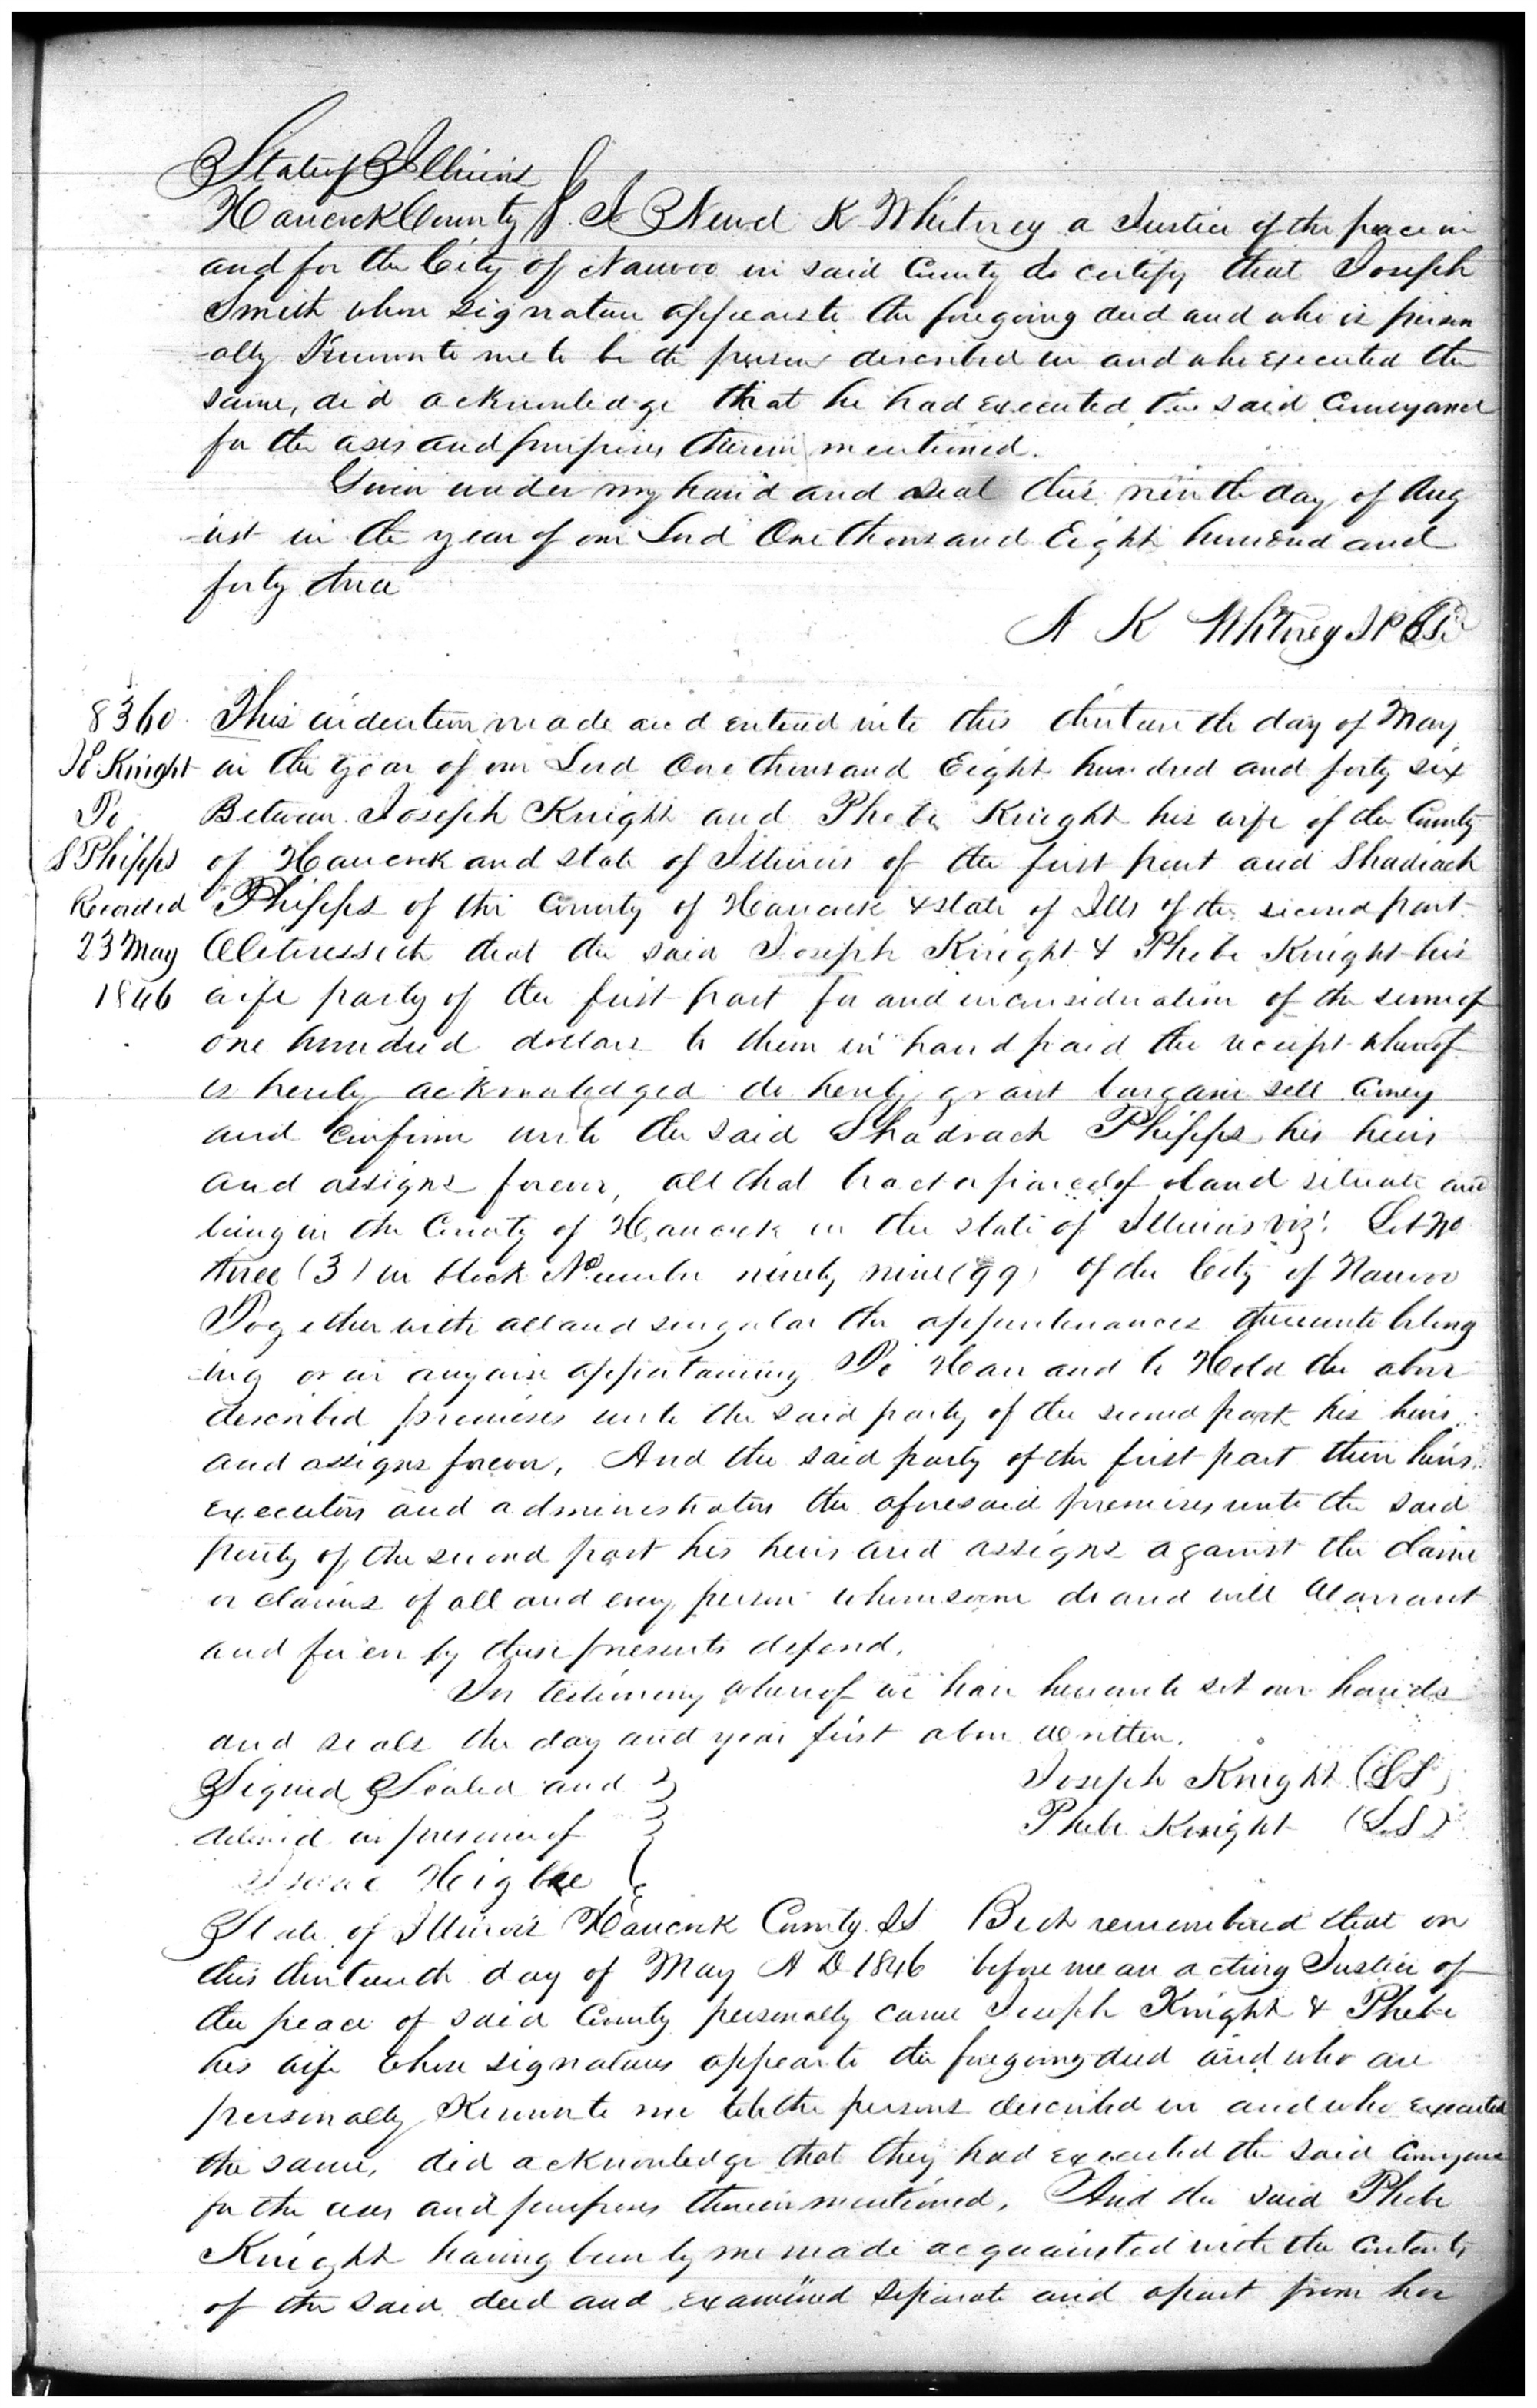 State of Illinois
Hancock County } S. I Newel K Whitney a Justice of the peace in
and for the City of Nauvoo in said County do certify that Joseph
Smith whose signature appears to the foregoing deed and who is person
-ally Known to me to be the person described in and who executed the
same, did acknowledge that he had executed the said Conveyance
for the uses and purposes therein mentioned.
Given under my hand and seal this ninth day of Aug
-ust in the year of our Lord One thousand Eight hundred and
forty three
N K Whitney J P
8360. This indenture made and entered into this thirteenth day of May
Jo Knight in the year of our Lord One thousand Eight hundred and forty six
To Between Joseph Knight and Phebe Knight his wife of the County
S Phipps of Hancock and state of Illinois of the first part and Shadrach
Recorded Phipps of the County of Hancock & state of Ills of the second part.
23 May Witnesseth that the said Joseph Knight & Phebe Knight his
1846 wife party of the first part for and in consideration of the sum of
one hundred dollars to them in hand paid the receipt whereof
is hereby acknowledged do hereby grant bargain sell Convey
and Confirm unto the said Shadrach Phipps his heirs
and assigns forever, all that tract or parcel of land situate and
being in the County of Hancock in the state of Illinois viz: Lot No
three (3) in block Number ninety nine (99) of the City of Nauvoo
Together with all and singular the appurtenances thereunto belong
-ing or in anywise appertaining To Have and to Hold the above
described premises unto the said party of the second part his heirs
and assigns forever, And the said party of the first part their heirs
executors and administrators the aforesaid premises unto the said
party of the second part his heirs and assigns against the claim
or claims of all and every person whomsoever do and will Warrant
and forever by these presents defend.
In testimony whereof we have hereunto set our hands
and seals the day and year first above written.
Signed Sealed and } Joseph Knight (LS)
delivered in presence of } Phebe Knight (L.S)
Isaac Higbee
State of Illinois Hancock County. SS Be it remembered that on
this thirteenth day of May A D 1846 before me an acting Justice of
the peace of said County personally came Joseph Knight & Phebe
his wife whose signatures appear to the foregoing deed and who are
personally Known to me to be the persons described in and who executed
the same, did acknowledge that they had executed the said Conveyance
for the uses and purposes therein mentioned. And the said Phebe
Knight having been by me made acquainted with the Contents
of the said deed and examined separate and apart from her